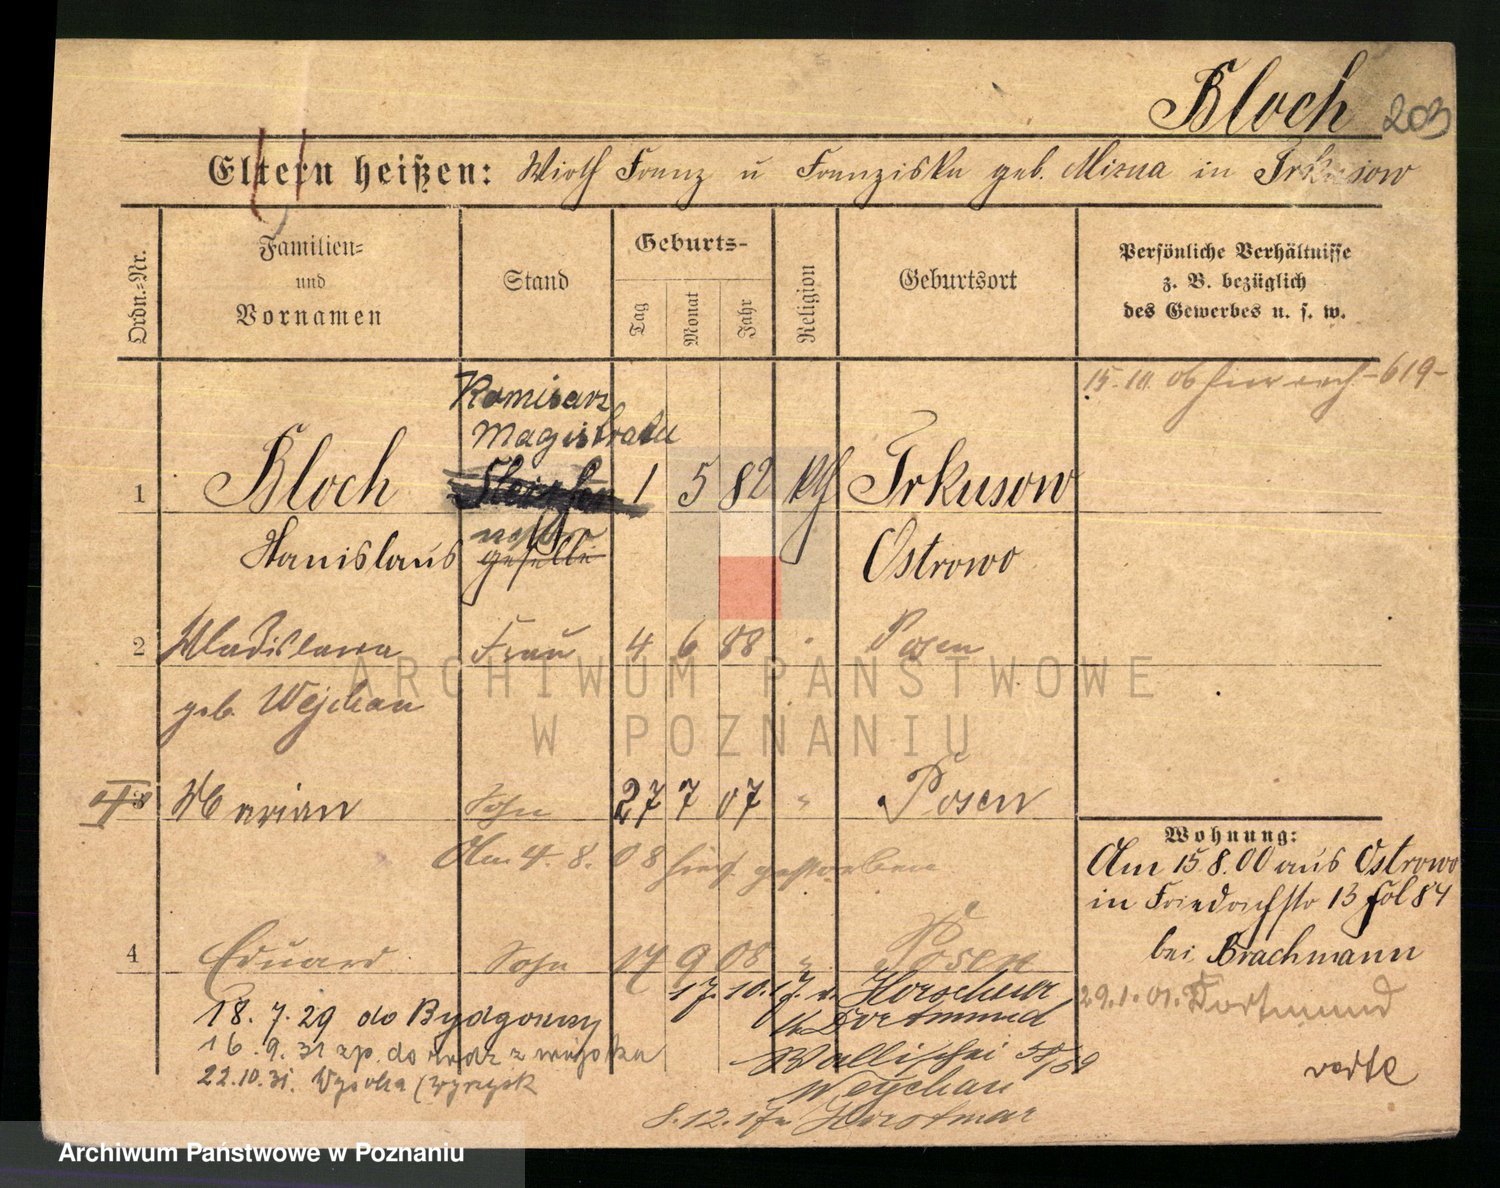 Bloch 203
Eltern heißen: Wirth Franz u Franziska geb. Mizua in Irkusow
Ordn.-Nr.
Familien- und Vornamen
Stand
Geburts-
Tag
Monat
Jahr
Religion
Geburtsort
Persönliche Verhältnisse
z. B. bezüglich
des Gewerbes u. s. w.
15.10.06 -619-
Komisarz
Magistratu
1 Bloch 1 5 82 kth Irkusow
Stanislaus geselle Ostrowo
2 Wladislawa Frau 4 6 88 " Posen
geb. Wejchan
3 Marian Sohn 27 7 07 " Posen
Am 4. 8. 08 hier gestorben
Wohnung:
Am 15 8.00 aus Ostrowo
in Friedrichstr 13 Fol 84
bei Brachmann
4 Eduard Sohn 14 9 08 " Posen
17.10.17. v.
29.1.01. Dortmund
18.7.29 do Bydgoszczy
Dortmund
16.9.31 zp. do
Wallischei 58/59
22.10.31. Wysoka (wyrzysk
Weychan
verte
8.12.17 n Horstmar
ARCHIWUM PAŃSTWOWE
W POZNANIU
Archiwum Państwowe w Poznaniu